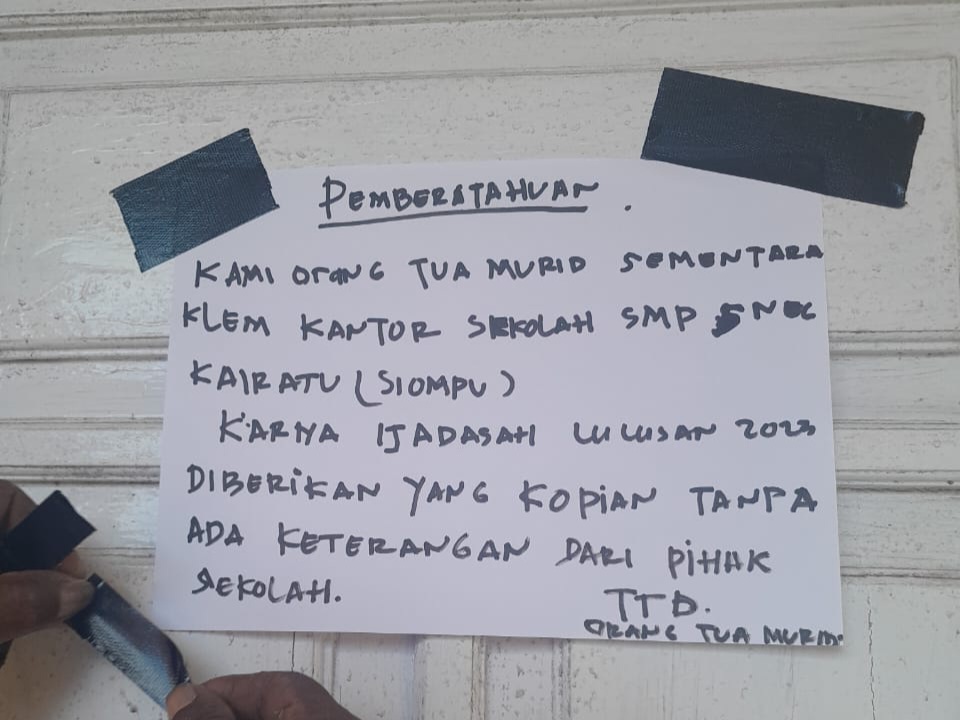 PEMBERITAHUAN .
KAMI OrANG TUA MURID SEMENTARA
KLEM KANTOR SEKOLAH SMP
KAIRATU (SIOMPU)
KARNA IJADASAH LULUSAN 2023
DIBERIKAN YANG KOPIAN TANPA
ADA KETERANGAN DARI PIHAK
SEKOLAH.
TTD.
ORANG TUA MURID.